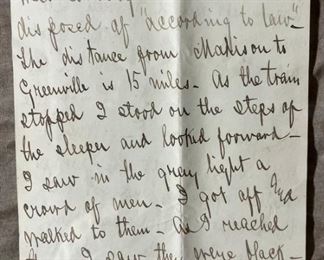 disposed of "according to law" –
The distance from Madison to
Greenville is 15 miles – As the train
stopped I stood on the steps of
the sleeper and looked forward –
I saw in the grey light a
crowd of men – I got off and
walked to them – As I reached
I saw they were black –